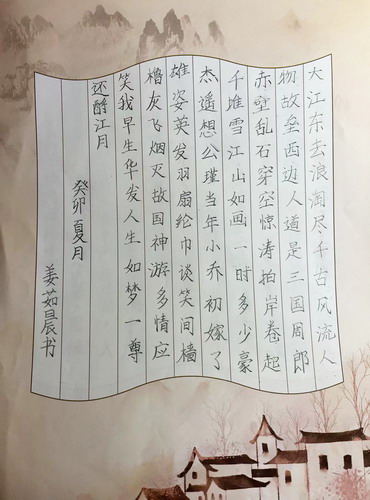 大江东去浪淘尽千古风流人
物故垒西边人道是三国周郎
赤壁乱石穿空惊涛拍岸卷起
千堆雪江山如画一时多少豪
杰遥想公瑾当年小乔初嫁了
雄姿英发羽扇纶巾谈笑间樯
橹灰飞烟灭故国神游多情应
笑我早生华发人生如梦一尊
还酹江月
癸卯夏月
姜茹晨书